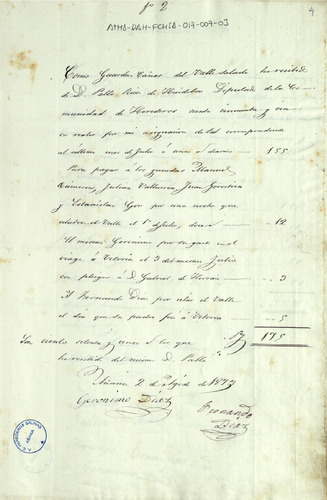 Nº 2
4
ATHA-DAH-FCHSA-017-007-03
Como Guarda Cañas del Valle salado he recibido
de D. Pablo Ruiz de Huidobro Diputado de la Co
munidad de Herederos ciento cincuenta y cin
co reales por mi asignacion de sal correspondiente
al último mes de Julio á cinco diarios 155
Para pagar á los guardas Manuel
Julian Valluerca Juan
y Estanislao por una noche que
el Valle el 1º de Julio, doce 12
Al mismo Geronimo por su gasto en el
viage á Vitoria el 3 del mismo Julio
con pliegos á D. Gabriel de Herran 3
A Fernando Diaz por celar el Valle
el dia que su padre fué á Vitoria 5
Son ciento setenta y cinco rs los que 175
he recibido del mismo D. Pablo
Añana 2 de Agto de 1879
Geronimo Diaz
Fernando
Diaz